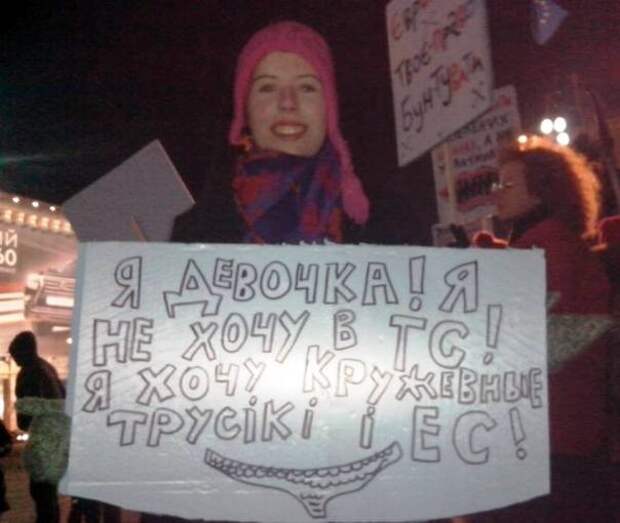 Я ДЕВОЧКА! Я
НЕ ХОЧУ В ТС!
Я ХОЧУ КРУЖЕВНЫЕ
ТРУСІКІ І ЕС!
ТВОЄ ПРАВО
БУНТУВАТИ
60